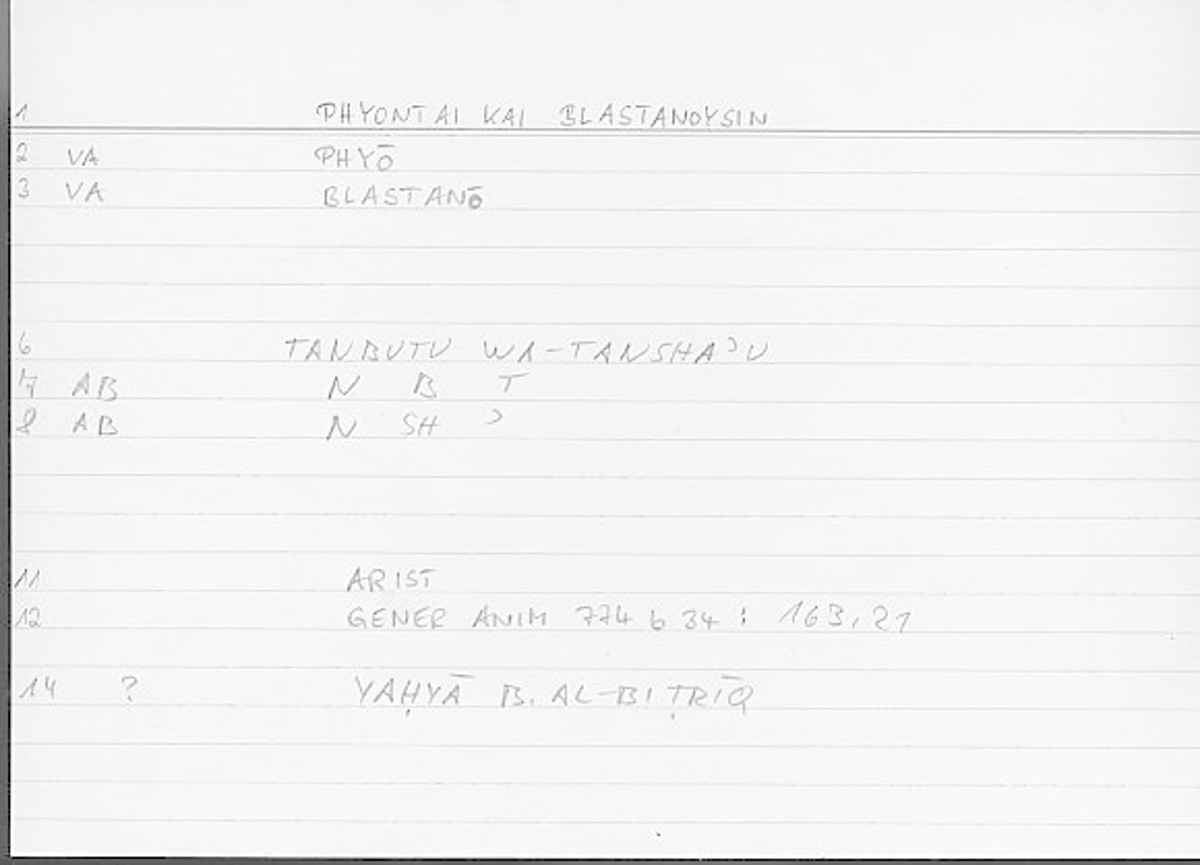 1 PHYONTAI KAI BLASTANOYSIN
2 VA PHYŌ
3 VA BLASTANŌ
6 TANBUTU WA-TANSHAʾU
7 AB N B T
8 AB N SH ʾ
11 ARIST
12 GENER ANIM 774 b 34 : 163,21
14 ? YAḤYĀ B. AL-BIṬRĪQ